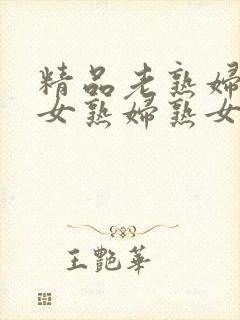 精品老熟婦
女熟婦熟女
王艷華